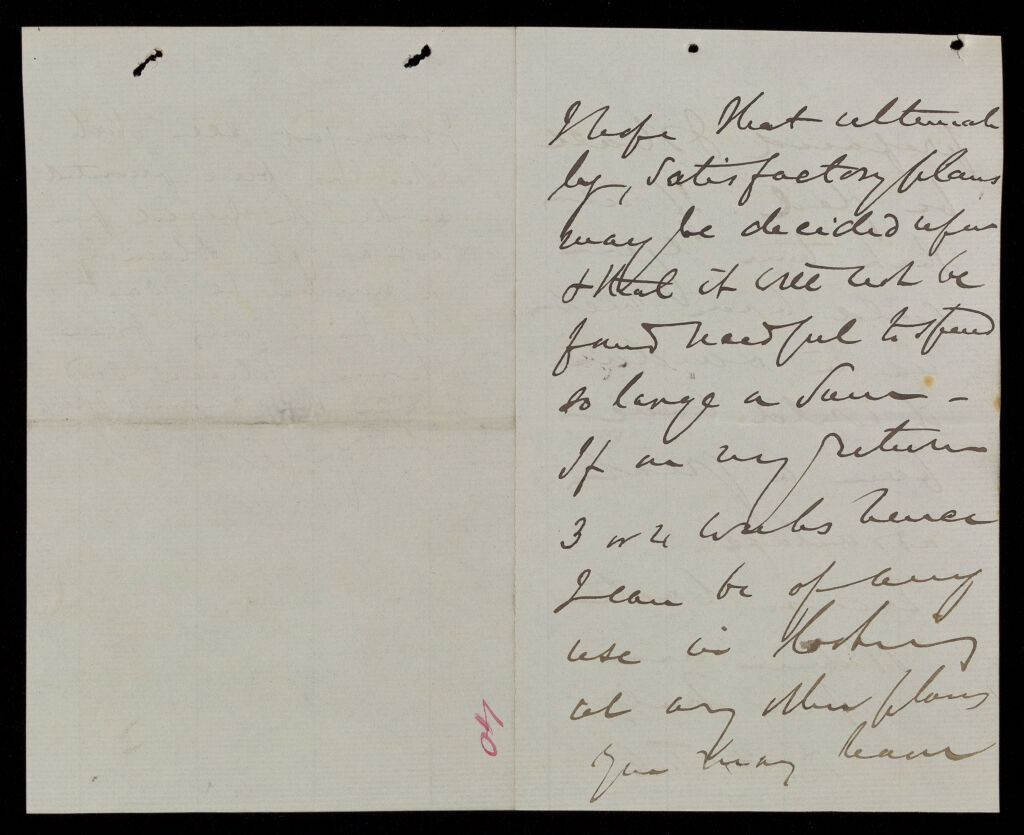 I hope that ultimate
ly, satisfactory plans
may be decided upon
& that it will not be
found needful to spend
so large a Sum -
If on my return
3 or 4 weeks hence
I can be of any
use in looking
at any other plans
you may have
40